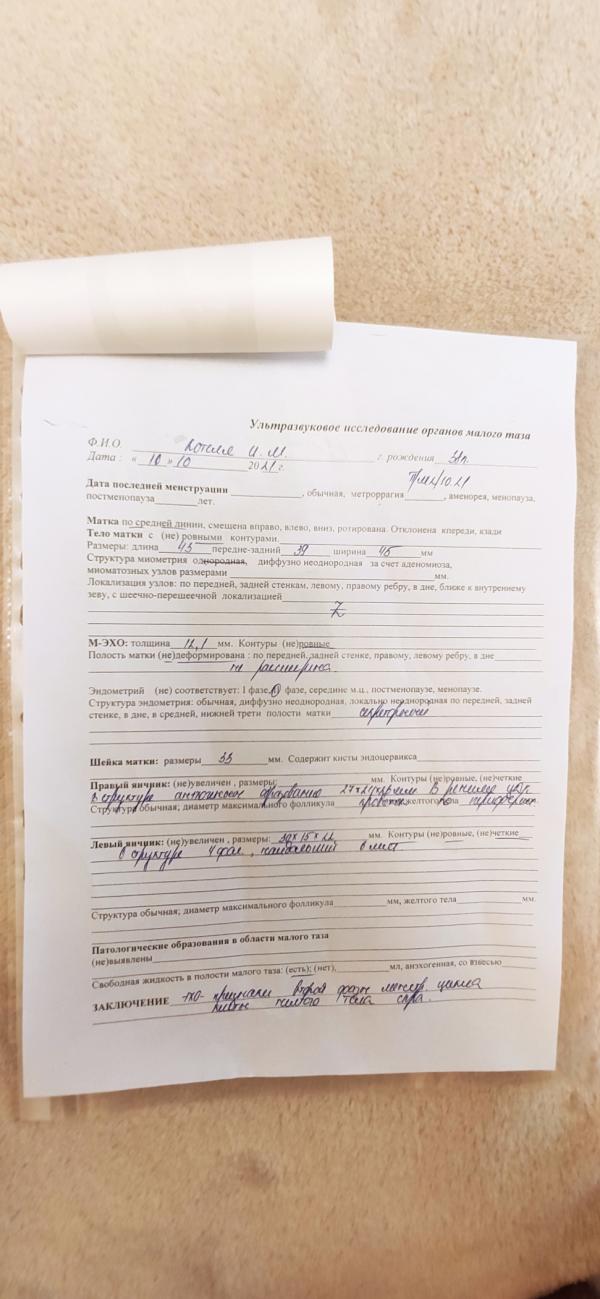 Ультразвуковое исследование органов малого таза
Ф.И.О. И. М. г. рождения
Дата : « 10 » 10 2021 г.
Дата последней менструации , обычная, метроррагия , аменорея, менопауза,
постменопауза лет.
Матка по средней линии, смещена вправо, влево, вниз, ротирована. Отклонена кпереди, кзади
Тело матки с (не) ровными контурами.
Размеры: длина 43 передне-задний 39 ширина 45 мм
Структура миометрия однородная, диффузно неоднородная за счет аденомиоза,
миоматозных узлов размерами мм.
Локализация узлов: по передней, задней стенкам, левому, правому ребру, в дне, ближе к внутреннему
зеву, с шеечно-перешеечной локализацией
М-ЭХО: толщина 12,1 мм. Контуры (не)ровные
Полость матки (не)деформирована : по передней, задней стенке, правому, левому ребру, в дне
не расширена
Эндометрий (не) соответствует: I фазе, II фазе, середине м.ц., постменопаузе, менопаузе.
Структура эндометрия: обычная, диффузно неоднородная, локально неоднородная по передней, задней
стенке, в дне, в средней, нижней трети полости матки
Шейка матки: размеры 33 мм. Содержит кисты эндоцервикса
Правый яичник: (не)увеличен , размеры: мм. Контуры (не)ровные, (не)четкие
в структуре образование в режиме
Структура обычная; диаметр максимального фолликула желтого тела по периферии
Левый яичник: (не)увеличен , размеры: 30х15х22 мм. Контуры (не)ровные, (не)четкие
в структуре 4 фол.,
Структура обычная; диаметр максимального фолликула мм, желтого тела мм.
Патологические образования в области малого таза
(не)выявлены
Свободная жидкость в полости малого таза: (есть); (нет), мл, анэхогенная, со взвесью
ЗАКЛЮЧЕНИЕ эхо-признаки второй фазы менстр. цикла
кисты желтого тела справа.